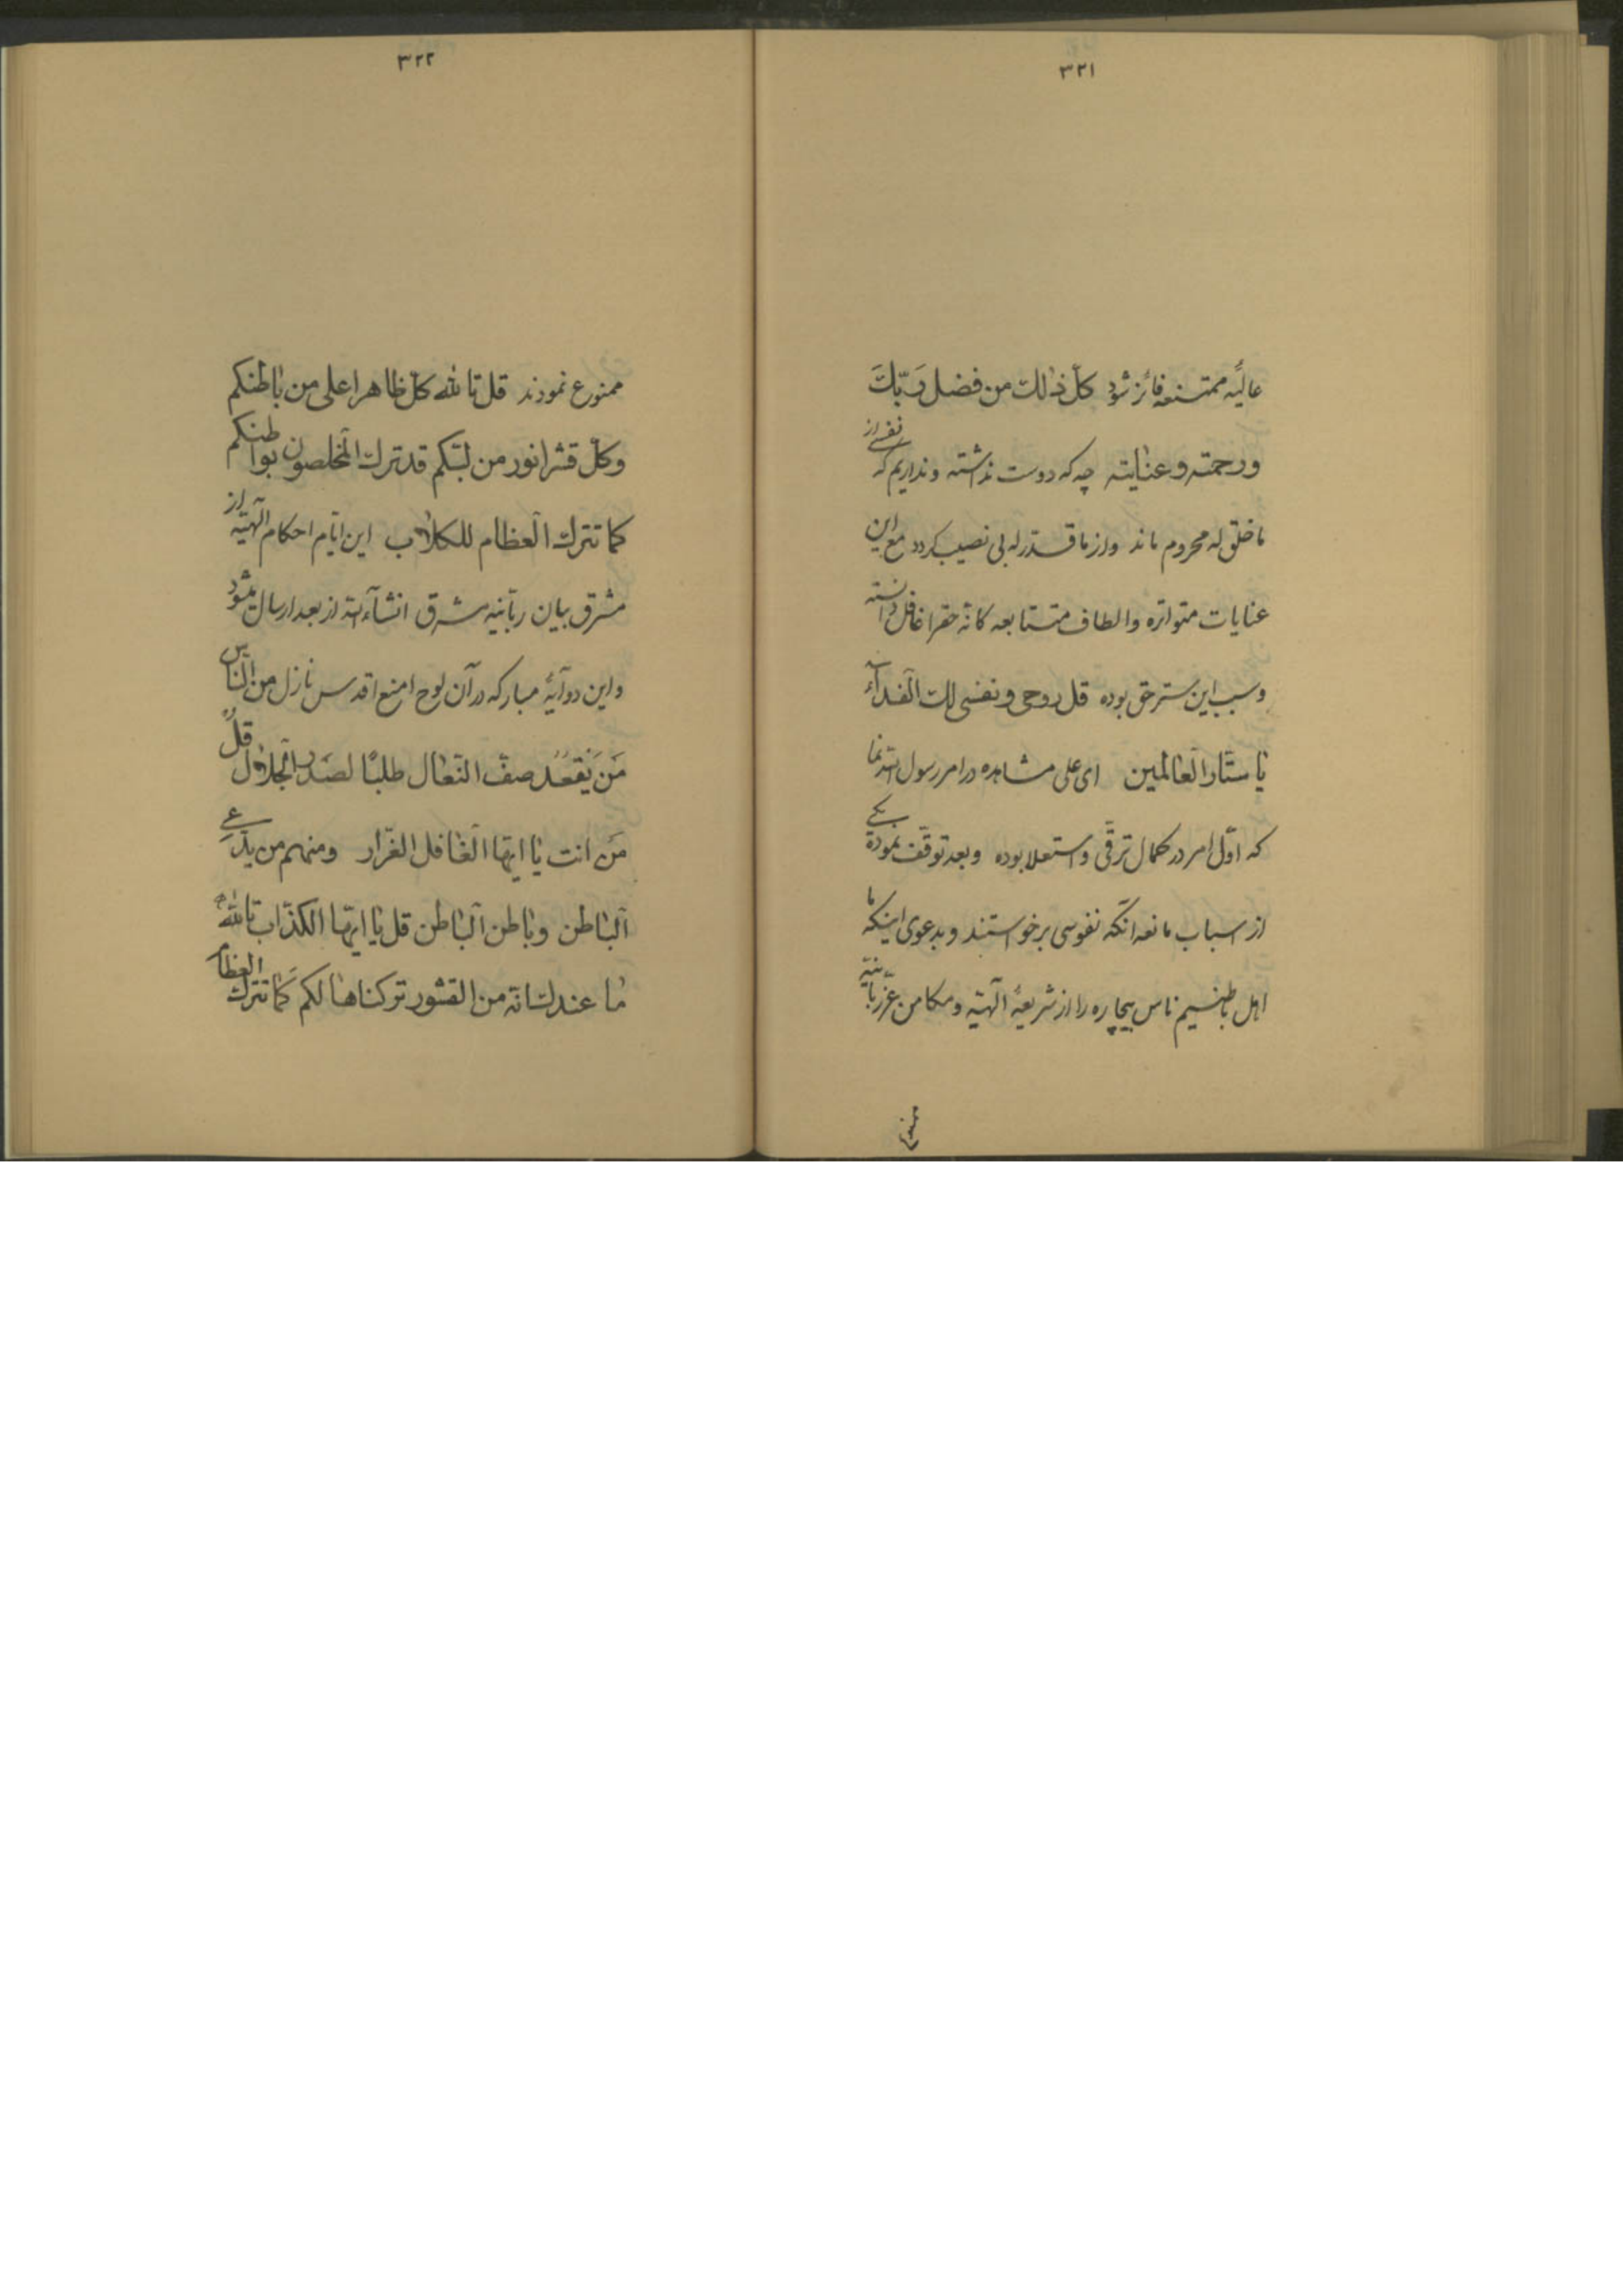 ٣٢١
عالیهٔ ممتنعه فائز شود کلّ ذٰلک من فضل رَبّکَ
ورحمته وعنایته چه که دوست نداشته ونداریم که نفسی از
ما خلق له محروم ماند واز ما قدّر له بی نصیب گردد مع این
عنایات متواتره والطاف متتابعه کانّه حقرا غافل دانسته
وسبب این ستر حق بوده قل روحی ونفسی لک الفدآء
یا ستّار العالمین ای علی مشاهده در امر رسول الله نما
که اوّل امر در کمال ترقّی واستعلا بوده وبعد توقّف نموده یکی
از اسباب مانعه آنکه نفوسی برخواستند وبدعوی اینکه ما
اهل باطنیم ناس بیچاره را از شریعهٔ الٓهیّه ومکامن عزّ ربّانیّه
ممنوع
٣٢٢
ممنوع نمودند قل تالله کلّ ظاهر اعلی من باطنکم
وکلّ قشر انور من لبّکم قد ترک المخلصون بواطنکم
کما تترک العظام للکلاب این ایّام احکام الٓهیّه از
مشرق بیان ربّانیه مشرق انشآءالله از بعد ارسال میشود
واین دو آیهٔ مبارکه در آن لوح امنع اقدس نازل من النّاس
مَن یَقعُدُ صفّ النّعال طلبًا لصدر الجلال قل
مَن انت یا ایّها الغافل الغرّار ومنهم من یدّعی
الباطن وباطن الباطن قل یا ایّها الکذّاب تالله
ما عندک انّه من القشور ترکناها لکم کما تترک العظام